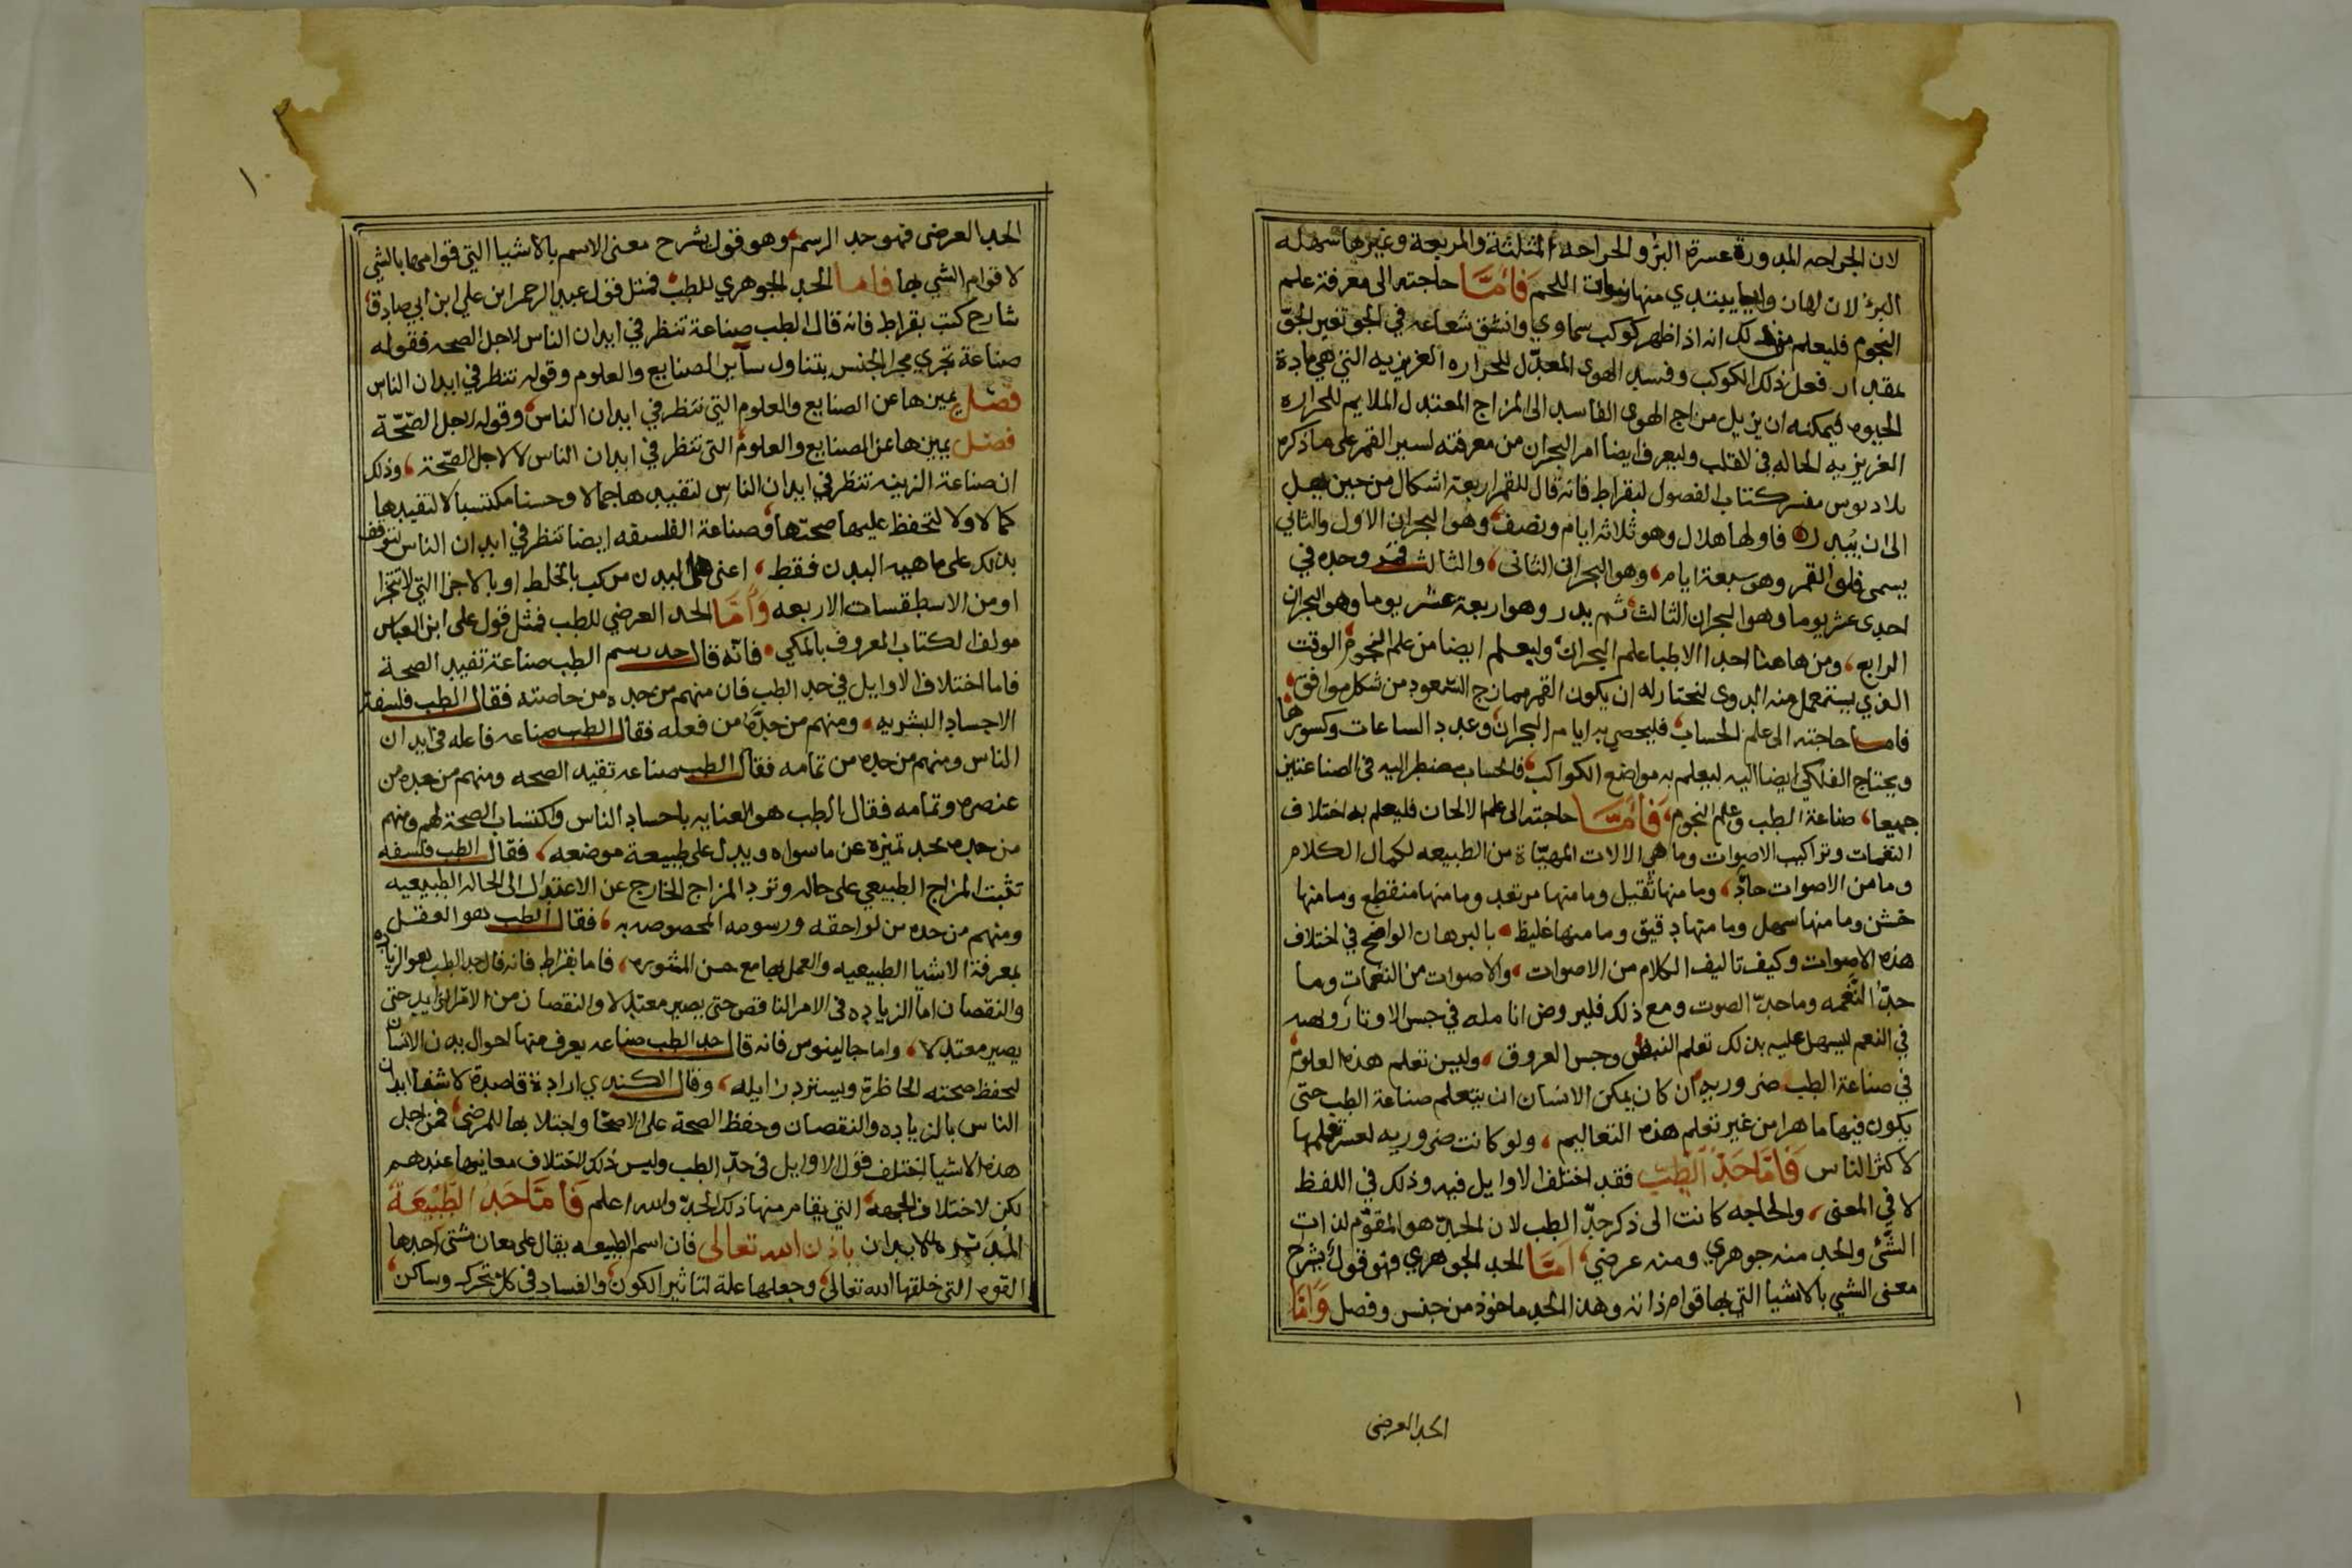 لان الجراحه المدورة عسرة البرؤ والجراحة المثلثة والمربعة وغيرها سهله
البرؤ لان لها زوايا يبتدي منها نبات اللحم فَأمَّا حاجته الى معرفة علم
النجوم فليعلم من ذلك انه اذا ظهر كوكب سماوي وانشق شعاعه في الجو تغير الجوّ
بمقدار فعل ذلك الكوكب وفسد الهوى المعدّل للحراره الغريزيه التي هي مادة
الحيوه فيمكنه ان يزيل مزاج الهوى الفاسد الى المزاج المعتدل الملايم للحراره
الغريزيه الحاله في القلب وليعرف ايضا امر البحران من معرفته لسير القمر على ما ذكره
بلاديوس مفسر كتاب الفصول لبقراط فانه قال للقمر اربعة اشكال من حين يهل
الى ان يبدر فاولها هلال وهو ثلاثة ايام ونصف وهو البحران الاول والثاني
يسمى فلق القمر وهو سبعة ايام وهو البحران الثاني والثالث قمر وحده في
احدى عشر يوما وهو البحران الثالث ثم بدر وهو اربعة عشر يوما وهو البحران
الرابع ومن هاهنا اخذ الاطبا علم البحران وليعلم ايضا من علم النجوم الوقت
الذي يستعمل منه الدوى لنختار له ان يكون القمر ممازج السعود من شكل موافق
فاما حاجته الى علم الحساب فليحصي به ايام البحران وعدد الساعات وكسورها
ويحتاج الفلكي ايضا اليه ليعلم به مواضع الكواكب فالحساب مضطر اليه في الصناعتين
جميعا صناعة الطب وعلم النجوم فَأمَّا حاجته الى علم الالحان فليعلم به اختلاف
النغمات وتراكيب الاصوات وما هي الالات المهيّاة من الطبيعه لكمال الكلام
وما من الاصوات حادّ وما منها ثقيل وما منها مرتعد وما منها منقطع وما منها
خشن وما منها سهل وما منها دقيق وما منها غليظ بالبرهان الواضح في اختلاف
هذه الاصوات وكيف تاليف الكلام من الاصوات والاصوات من النغمات وما
حدّ النَّغمه وما حدّ الصوت ومع ذلك فليروض انامله في جس الاوتار
في النغم ليسهل عليه بذلك تعلم النبض وجس العروق وليس تعلم هذه العلوم
في صناعة الطب ضروريه ان كان يمكن الانسان ان يتعلم صناعة الطب حتى
يكون فيها ماهرا من غير تعلم هذه التعاليم ولو كانت ضروريه لعسر تعلمها
لاكثر الناس فَأمَّا حَدُّ الطِبّ فقد اختلف الاوايل فيه وذلك في اللفظ
لا في المعنى والحاجه كانت الى ذكر حدّ الطب لان الحدّ هو المقوّم لذات
الشَّئ والحد منه جوهري ومنه عرضي امَّا الحد الجوهري فهو قول يشرح
معنى الشي بالاشيا التي بها قوام ذاته وهذا الحد ماخوذ من جنس وفصل وَامَّا
الحد العرضى
١
الحد العرضى فهو حد الرسم وهو قول يشرح معنى الاسم بالاشيا التي قوامها بالشي
لا قوام الشي بها فاما الحد الجوهري للطب فمثل قول عبد الرحمن ابن علي ابن ابي صادق
شارح كتب بقراط فانه قال الطب صناعة تنظر في ابدان الناس لاجل الصحه فقوله
صناعة تجري مجرا الجنس يتناول ساير الصنايع والعلوم وقوله تنظر في ابدان الناس
فصل يميزها عن الصنايع والعلوم التي تنظر في ابدان الناس وقوله لاجل الصّحّة
فصل يميزها عن الصنايع والعلوم التي تنظر في ابدان الناس لا لاجل الصّحة وذلك
ان صناعة الزينه تنظر في ابدان الناس لتفيدها جمالا وحسنا مكتسبا لا لتفيدها
كمالا ولا لتحفظ عليها صحتها وصناعة الفلسفه ايضا تنظر في ابدان الناس لتوقف
بذلك على ماهيه البدن فقط اعنى هل البدن مركب بالخلط او بالاجزا التي لا تتجزا
او من الاسطقسات الاربعه وَأمَّا الحد العرضي للطب فمثل قول على ابن العباس
مولف الكتاب المعروف بالملكي فانّه قال حد رسم الطب صناعة تفيد الصحة
فاما اختلاف الاوايل في حد الطب فان منهم من حده من خاصته فقال الطب فلسفة
الاجساد البشريه ومنهم من حدّه من فعله فقال الطب صناعه فاعله في ابدان
الناس ومنهم من حده من تمامه فقال الطب صناعه تفيد الصحه ومنهم من حده من
عنصره وتمامه فقال الطب هو العنايه باجساد الناس واكتساب الصحة لهم ومنهم
من حده بحد تميزه عن ما سواه ويدل على طبيعة موضعه فقال الطب فلسفه
تثبت المزاج الطبيعي على حاله وترد المزاج الخارج عن الاعتدال الى الحاله الطبيعيه
ومنهم من حده من لواحقه ورسومه المخصوصه به فقال الطب هو العقل
بمعرفة الاشيا الطبيعيه والعمل بها مع حسن المشوره فاما بقراط فانه قال حد الطب هو الزياده
والنقصان اما الزياده في الامر الناقص حتى يصير معتدلا والنقصان من الامر الزايد حتى
يصير معتدلا واما جالينوس فانه قال حد الطب صناعه يعرف منها احوال بدن الانسان
لحفظ صحته الحاظرة ويسترد زايله وقال الكندي ارادة قاصدة لاشفا ابدان
الناس بالزياده والنقصان وحفظ الصحة على الاصحّا واجتلابها للمرضى فمن اجل
هذه الاشيا اختلف قول الاوايل في حدّ الطب وليس ذلك لاختلاف معانيها عندهم
لكن لاختلاف الجهة التي يقام منها ذلك الحدّ والله اعلم فَأمَّا حَدُ الطَّبْيعَةْ
المُدَبّره للابدان باذن الله تعالى فان اسم الطبيعه يقال على معان شتى احدها
القوه التي خلقها الله تعالى وجعلها علة لتاثير الكون والفساد في كل متحرك وساكن
١٠